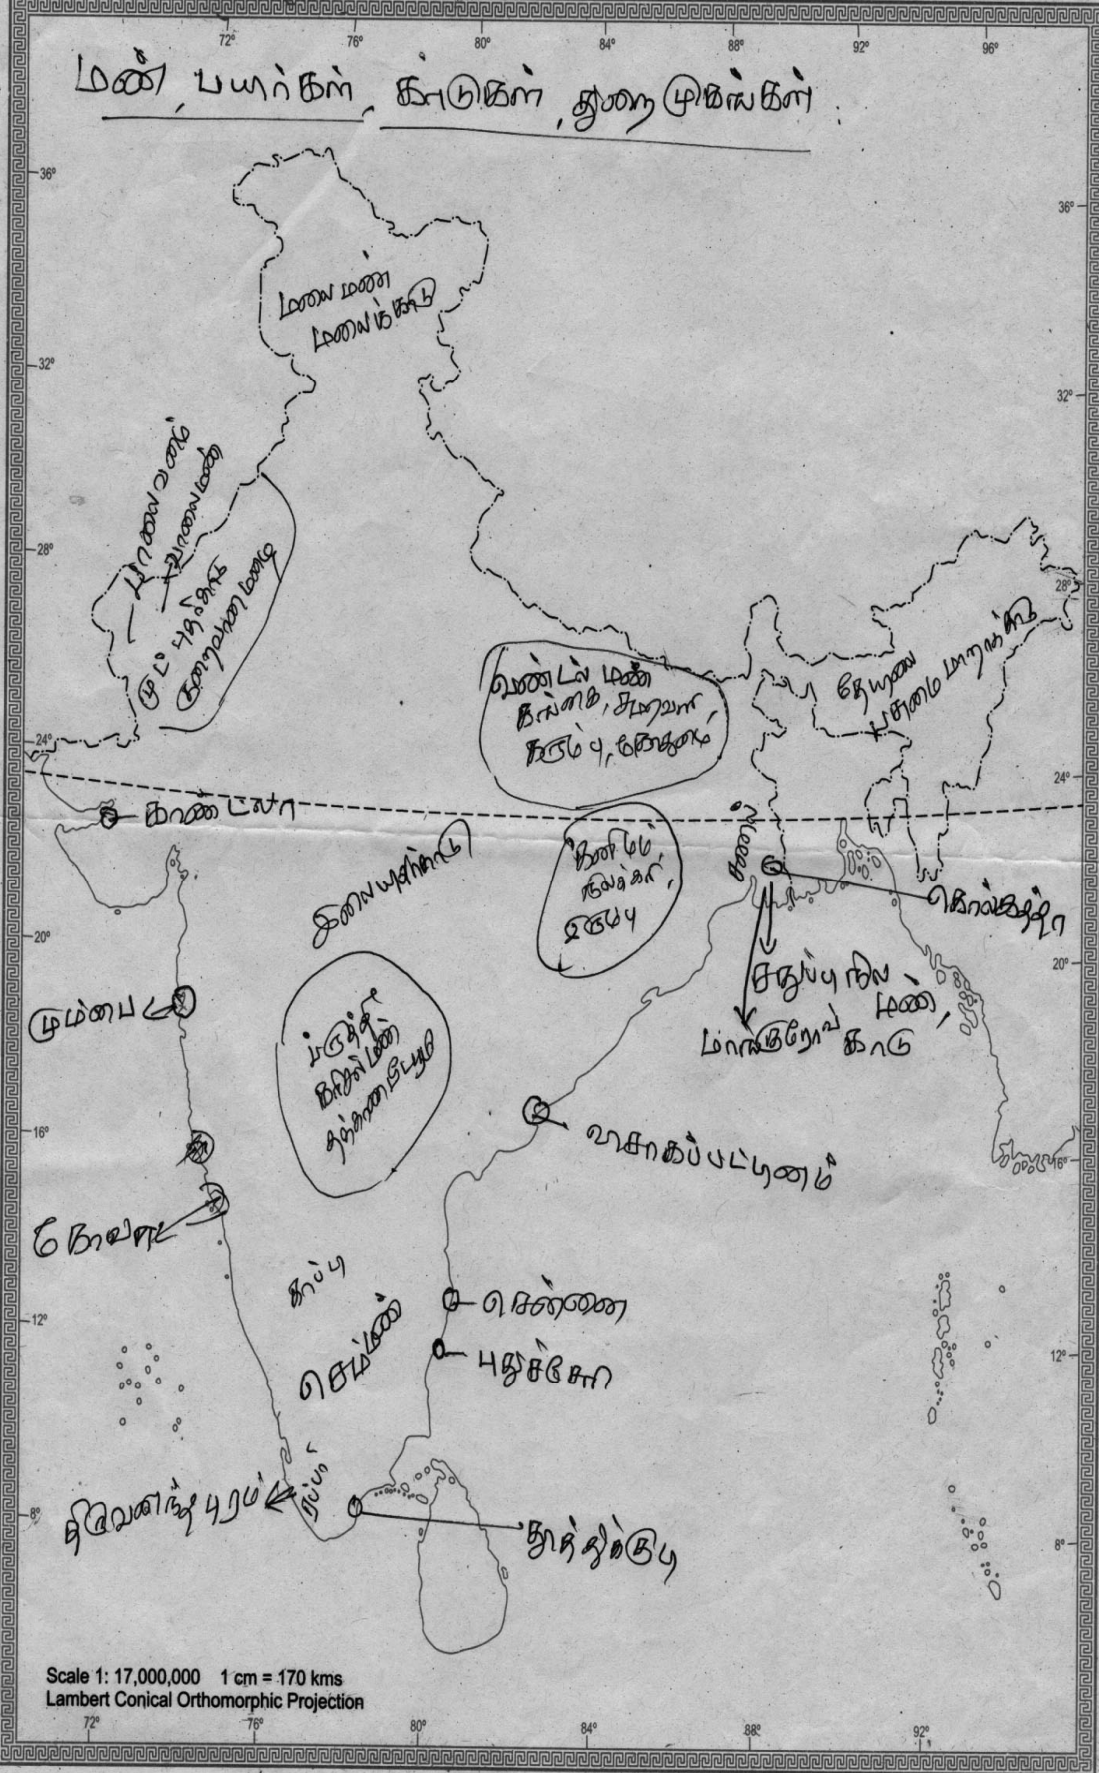 72° 76° 80° 84° 88° 92° 96°
மண், பயிர்கள், காடுகள், துறைமுகங்கள்.
36°
36°
மலைமண்
மலைக்காடு
32°
32°
பாலைவனம்
பாலைமண்
முட்புதர்காடு
28°
28°
வண்டல் மண்
கங்கை, சமவெளி,
கரும்பு, கோதுமை
தேயிலை
பசுமை மாறாக்காடு
24°
24°
காண்ட்லா
இலையுதிர்காடு
கனிமம்,
நிலக்கரி,
இரும்பு
சணல்
கொல்கத்தா
20°
20°
சதுப்பு நில
மண்,
மாங்குரோவ் காடு
மும்பை
பருத்தி
கரிசல்மண்
தக்காணபீடபூமி
16°
16°
விசாகப்பட்டிணம்
கோவா
காப்பி
செம்மண்
சென்னை
12°
12°
புதுச்சேரி
ரப்பர்
திருவனந்தபுரம்
8°
8°
தூத்துக்குடி
Scale 1: 17,000,000 1 cm = 170 kms
Lambert Conical Orthomorphic Projection
72° 76° 80° 84° 88° 92°